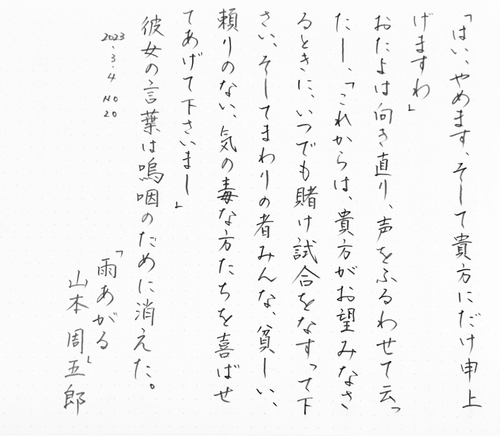 「はい、やめます、そして貴方にだけ申上
げますわ」
おたよは向き直り、声をふるわせて云っ
た―、「これからは、貴方がお望みなさ
るときに、いつでも賭け試合をなすって下
さい、そしてまわりの者みんな、貧しい、
頼りのない、気の毒な方たちを喜ばせ
てあげて下さいまし」
彼女の言葉は嗚咽のために消えた。
「雨あがる」
山本周五郎
2023.3.4 NO 20